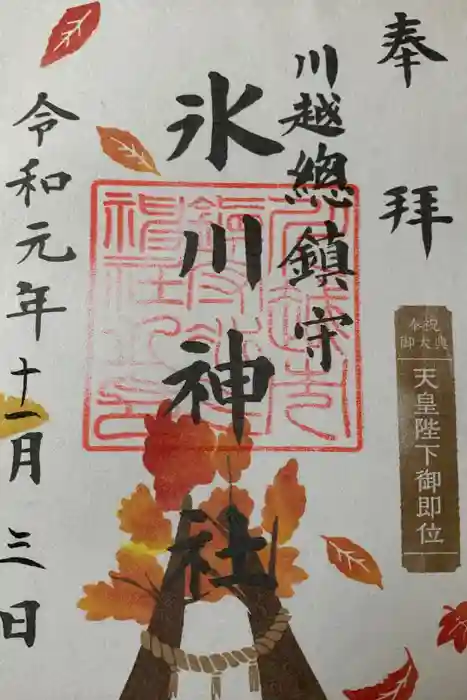 奉拝
奉祝
御大典
天皇陛下御即位
川越總鎮守
氷川神社
令和元年十一月三日